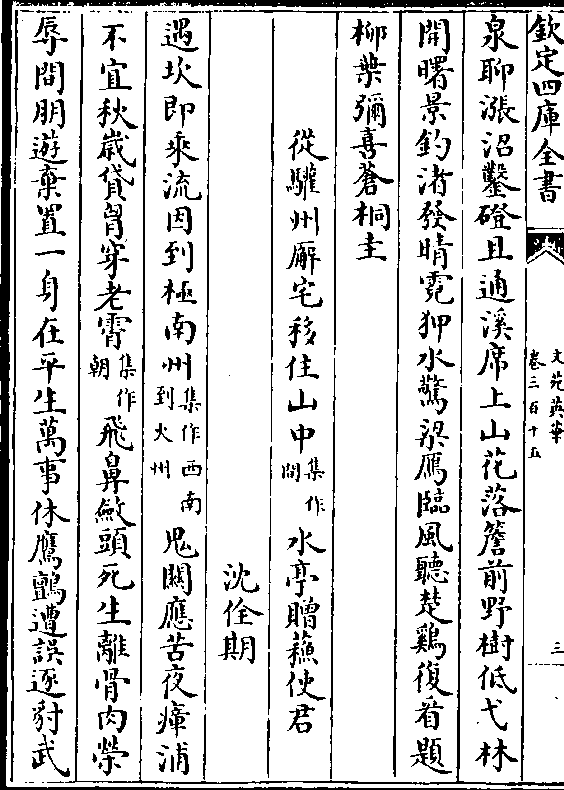 欽定四庫全書
文苑英華
卷三百十五
三
泉聊漲沼鑿磴且通溪席上山花落簷前野樹低弋林
開曙景釣渚發晴霓狎水驚梁鴈臨風聽楚鷄復看題
柳葉彌喜蒼桐圭
從驩州廨宅移住山中集作間水亭贈蘓使君
沈佺期
遇坎即乘流因到極南州集作西南到火州鬼闗應苦夜瘴浦
不宜秋歲貸胷穿老霄集作朝飛鼻飲頭死生離骨肉榮
辱間朋遊棄置一身在平生萬事休鷹鸇遭誤逐豺武